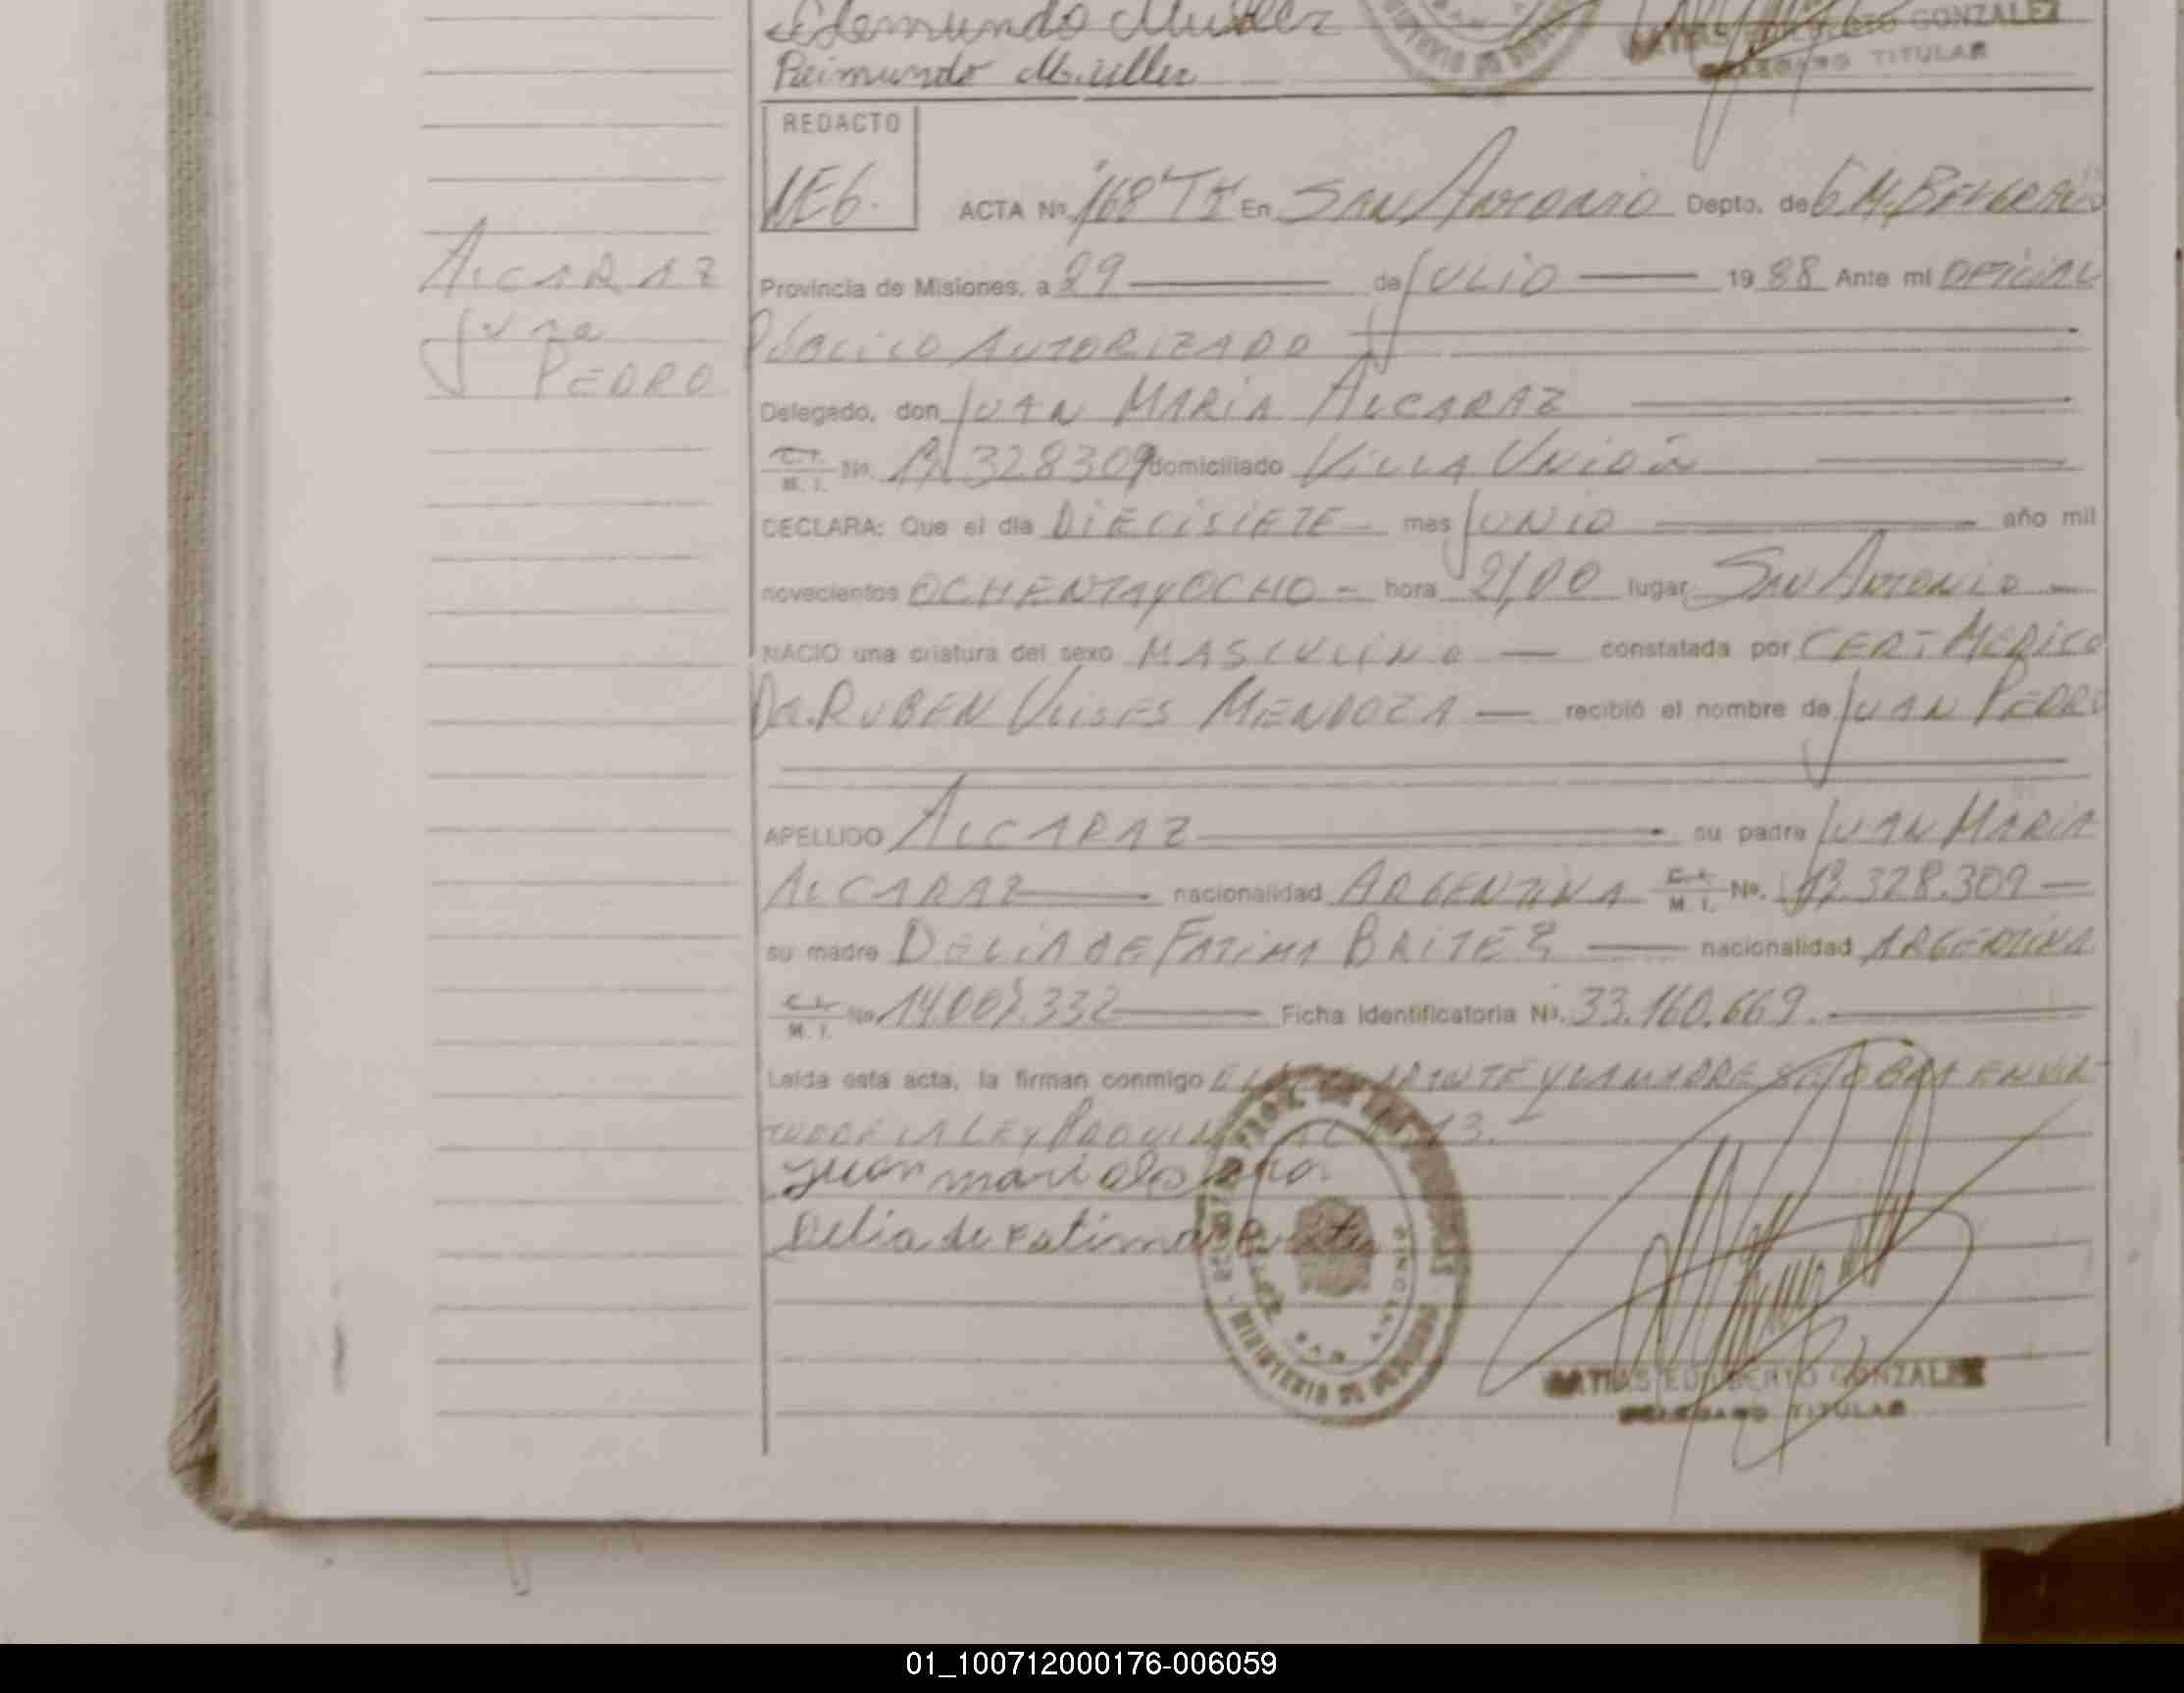 Edemundo Müller
GONZALEZ
Reimundo Müller
TITULAR
REDACTO
ACTA Nº "168" TI En SAN ANTONIO Depto. de G. M. BELGRANO
ALCARAZ
Provincia de Misiones, a 29 de JULIO 1988 Ante mi OFICIAL
Juan
PÚBLICO AUTORIZADO
PEDRO
Delegado, don JUAN MARIA ALCARAZ
C. I.
M. I. No. 328309 domiciliado VILLA UNIÓN
DECLARA: Que el día DIECISIETE mes JUNIO año mil
novecientos OCHENTA y OCHO - hora 21,00 lugar SAN ANTONIO
NACIO una criatura del sexo MASCULINO constatada por CERT. MEDICO
DR. RUBEN ULISES MENDOZA recibió el nombre de JUAN PEDRO
APELLIDO ALCARAZ su padre JUAN MARIA
ALCARAZ nacionalidad ARGENTINA C. I.
M. I. No. 328.309
su madre DELIA DE FATIMA BRITEZ nacionalidad ARGENTINA
C. I.
M. I. No. 332 Ficha Identificatoria Nº. 33.160.669.
Leída esta acta, la firman conmigo Y LA MADRE
DE LA LEY
juan mari
Delia de Fatima
MATIAS EDILBERTO GONZALEZ
DELEGADO TITULAR
01_100712000176-006059